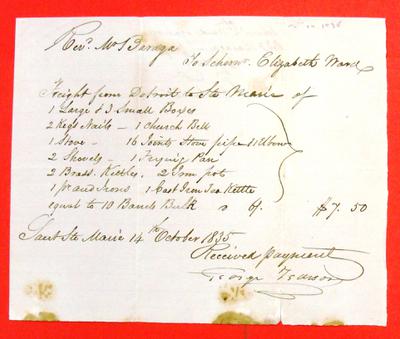 Revd. Mr Baraga
To Schonr. Elizabeth Ward
To Freight from Detroit to Ste Marie of
1 Large & 3 Small Boxes
2 Kegs Nails — 1 Church Bell
1 Stove — 16 Joints Stove pipe & 1 Elbow
2 Shovels — 1 Frying Pan
2 Brass Kettles. 2 Iron pots
1 pr andIrons 1 Cast Iron Tea Kettle
equal to 10 Barrels Bulk a 6/. $7.50
Saut Ste Marie 14th October 1835
Received payment
George